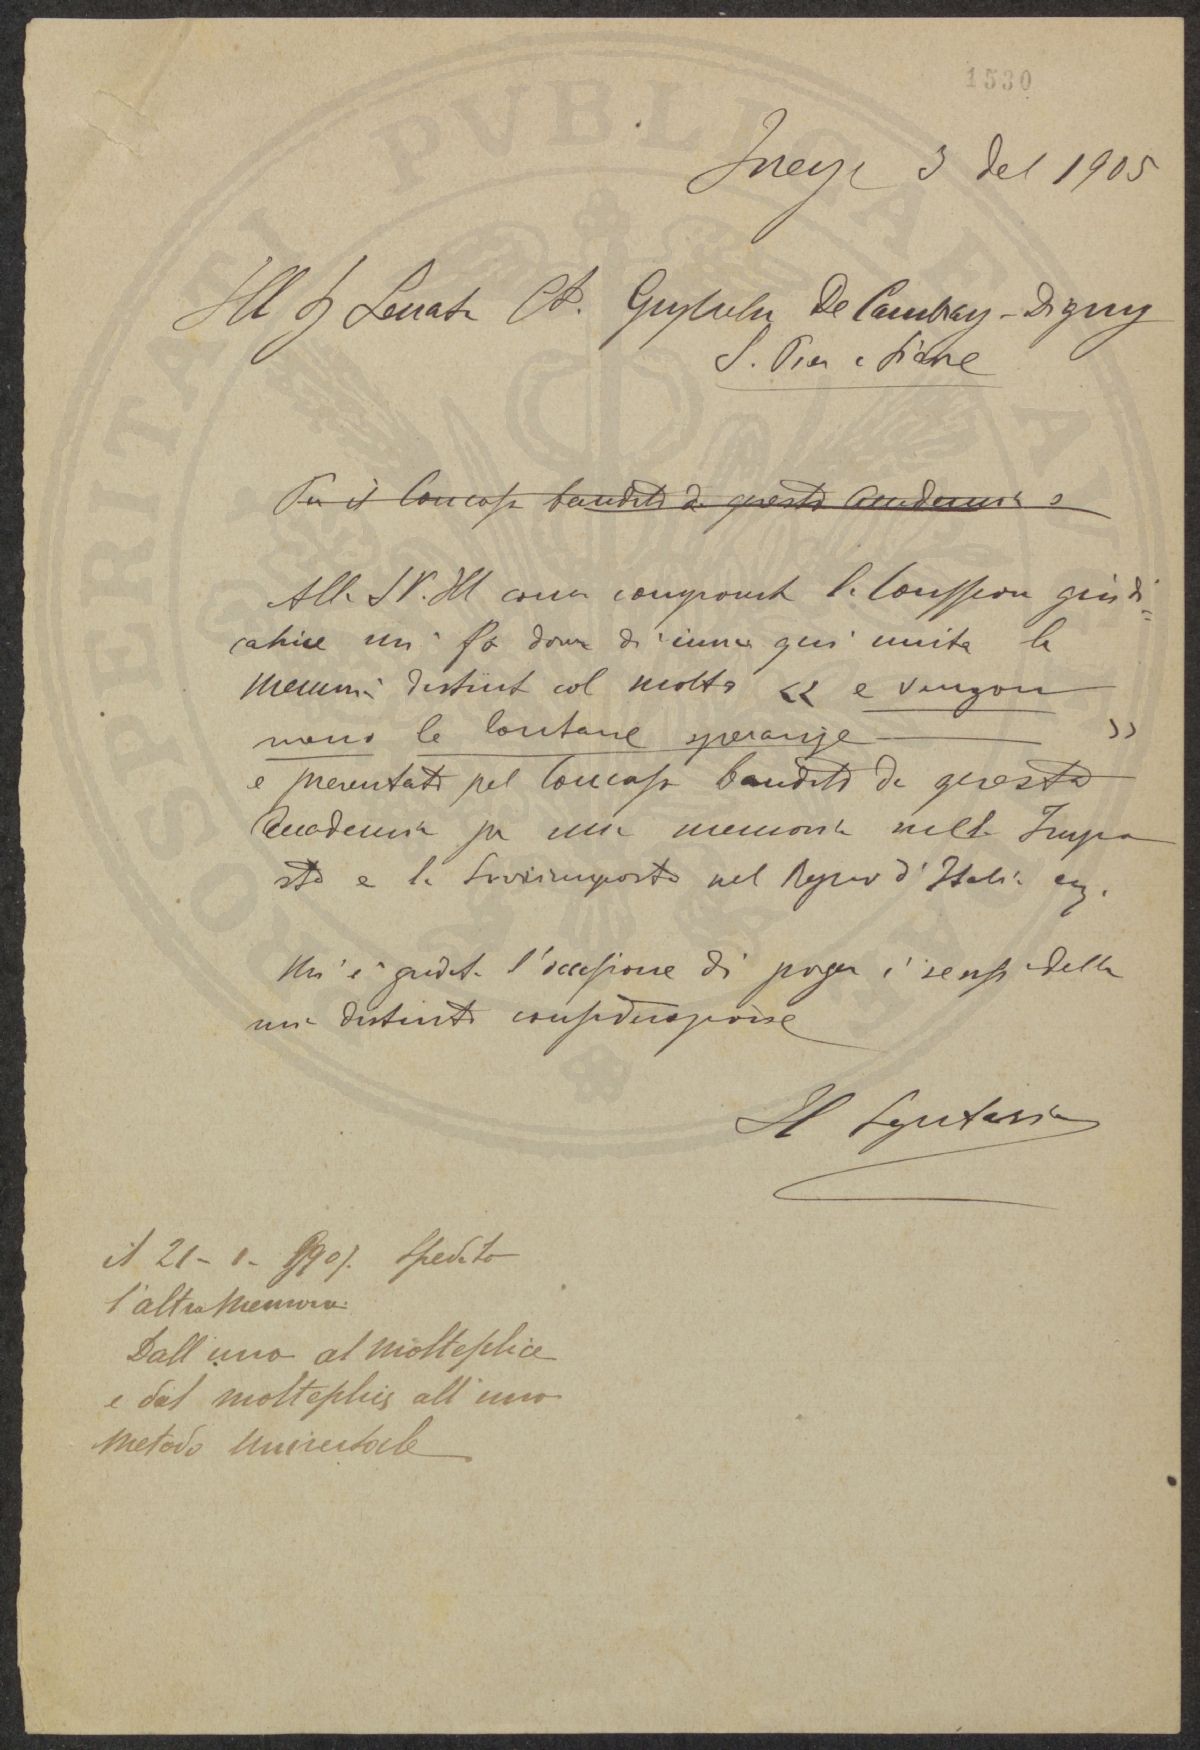 1530
Firenze 3 del 1905
Ill Sg Senat Ct. Guglielm De Cambray-Digny
S. Pier a Sieve
Per il Concorso bandito da questa Accademia
Alla S.V. Ill come component la Comission giudi=
catrice mi fo dover di qui unita la
memoria distint col motto « e vengon
meno le lontane speranze »
e presentata pel Concorso bandito da questa
Accademia per una memoria sulla Impo
sta e la Sovrimposta nel Regno d'Italia ecc.
Mi è grata l'occasione di porger i sensi della
mia distinta considerazione
Il Segretario
il 21- spedito
l'altra memoria
Dall'uno al molteplice
e dal molteplice all'uno
metodo universale
PROSPERITATI PVBLICAE AVGENDAE